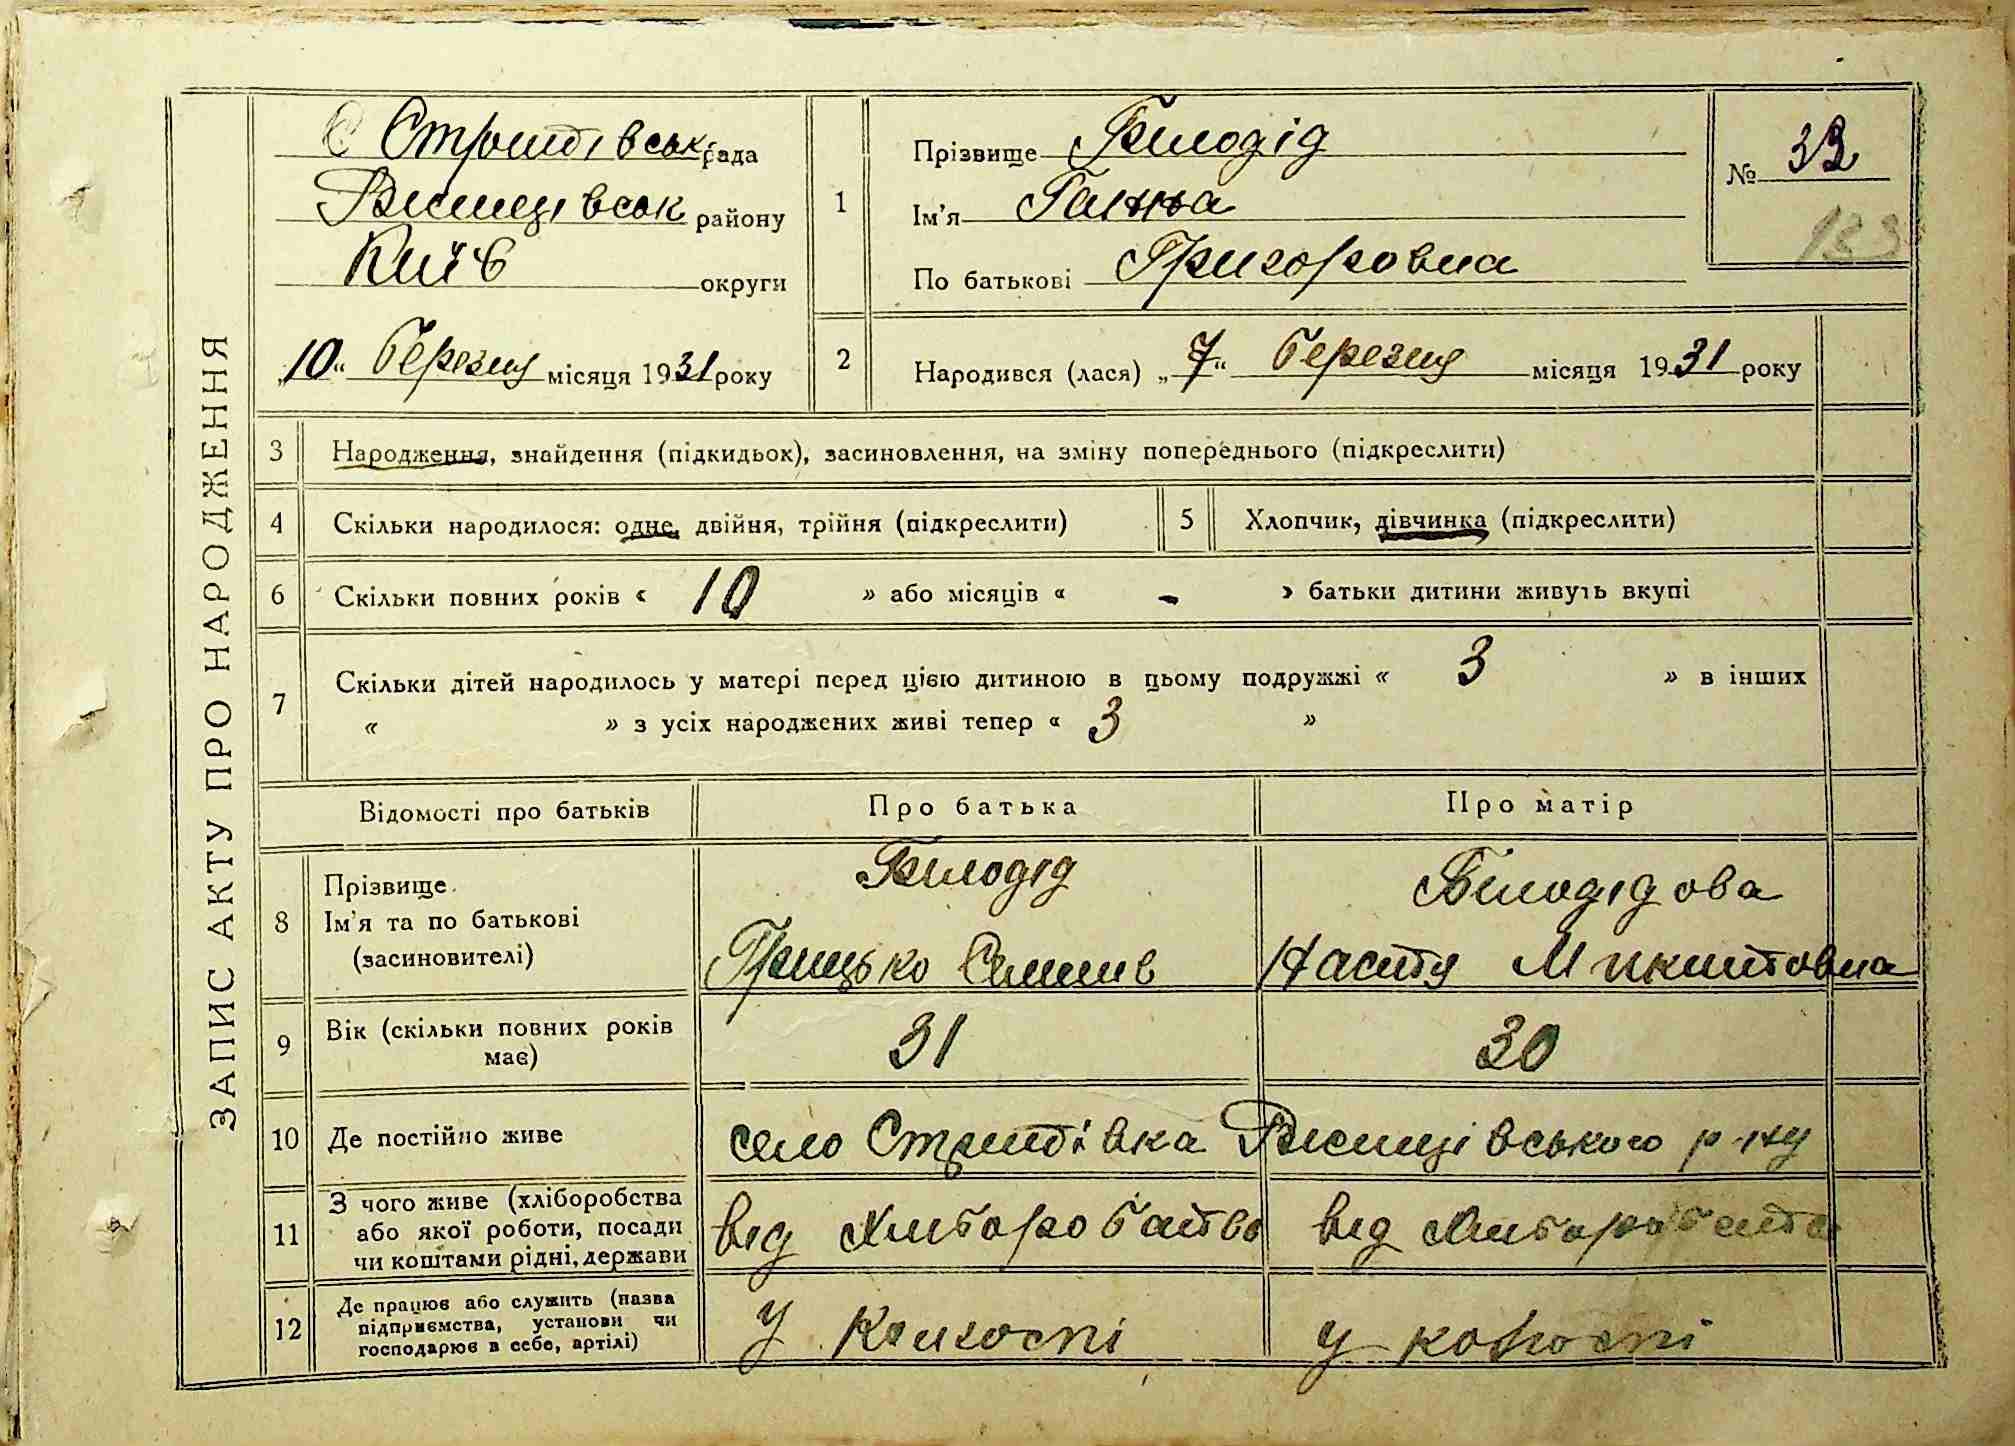 ЗАПИС АКТУ ПРО НАРОДЖЕННЯ
рада
району
Київ округи
„10“ березня місяця 1931 року
1
Прізвище Білодід
Ім'я Ганна
По батькові Григоровна
№ 33
133
2 Народився (лася) „7“ березня місяця 1931 року
3 Народження, знайдення (підкидьок), засиновлення, на зміну попереднього (підкреслити)
4 Скільки народилося: одне, двійня, трійня (підкреслити) 5 Хлопчик, дівчинка (підкреслити)
6 Скільки повних років « 10 » або місяців « - » батьки дитини живуть вкупі
7 Скільки дітей народилось у матері перед цією дитиною в цьому подружжі « 3 » в інших
« » з усіх народжених живі тепер « 3 »
Відомості про батьків Про батька Про матір
8 Прізвище Ім'я та по батькові (засиновителі)
Білодід
Грицько Семенів
Білодідова
Настя Микитовна
9 Вік (скільки повних років має) 31 30
10 Де постійно живе село р-ну
11 З чого живе (хліборобства або якої роботи, посади чи коштами рідні, держави від хлиборобства від хлиборобства
12 Де працює або служить (назва підприємства, установи чи господарює в себе, артілі) у колгоспі у колгоспі